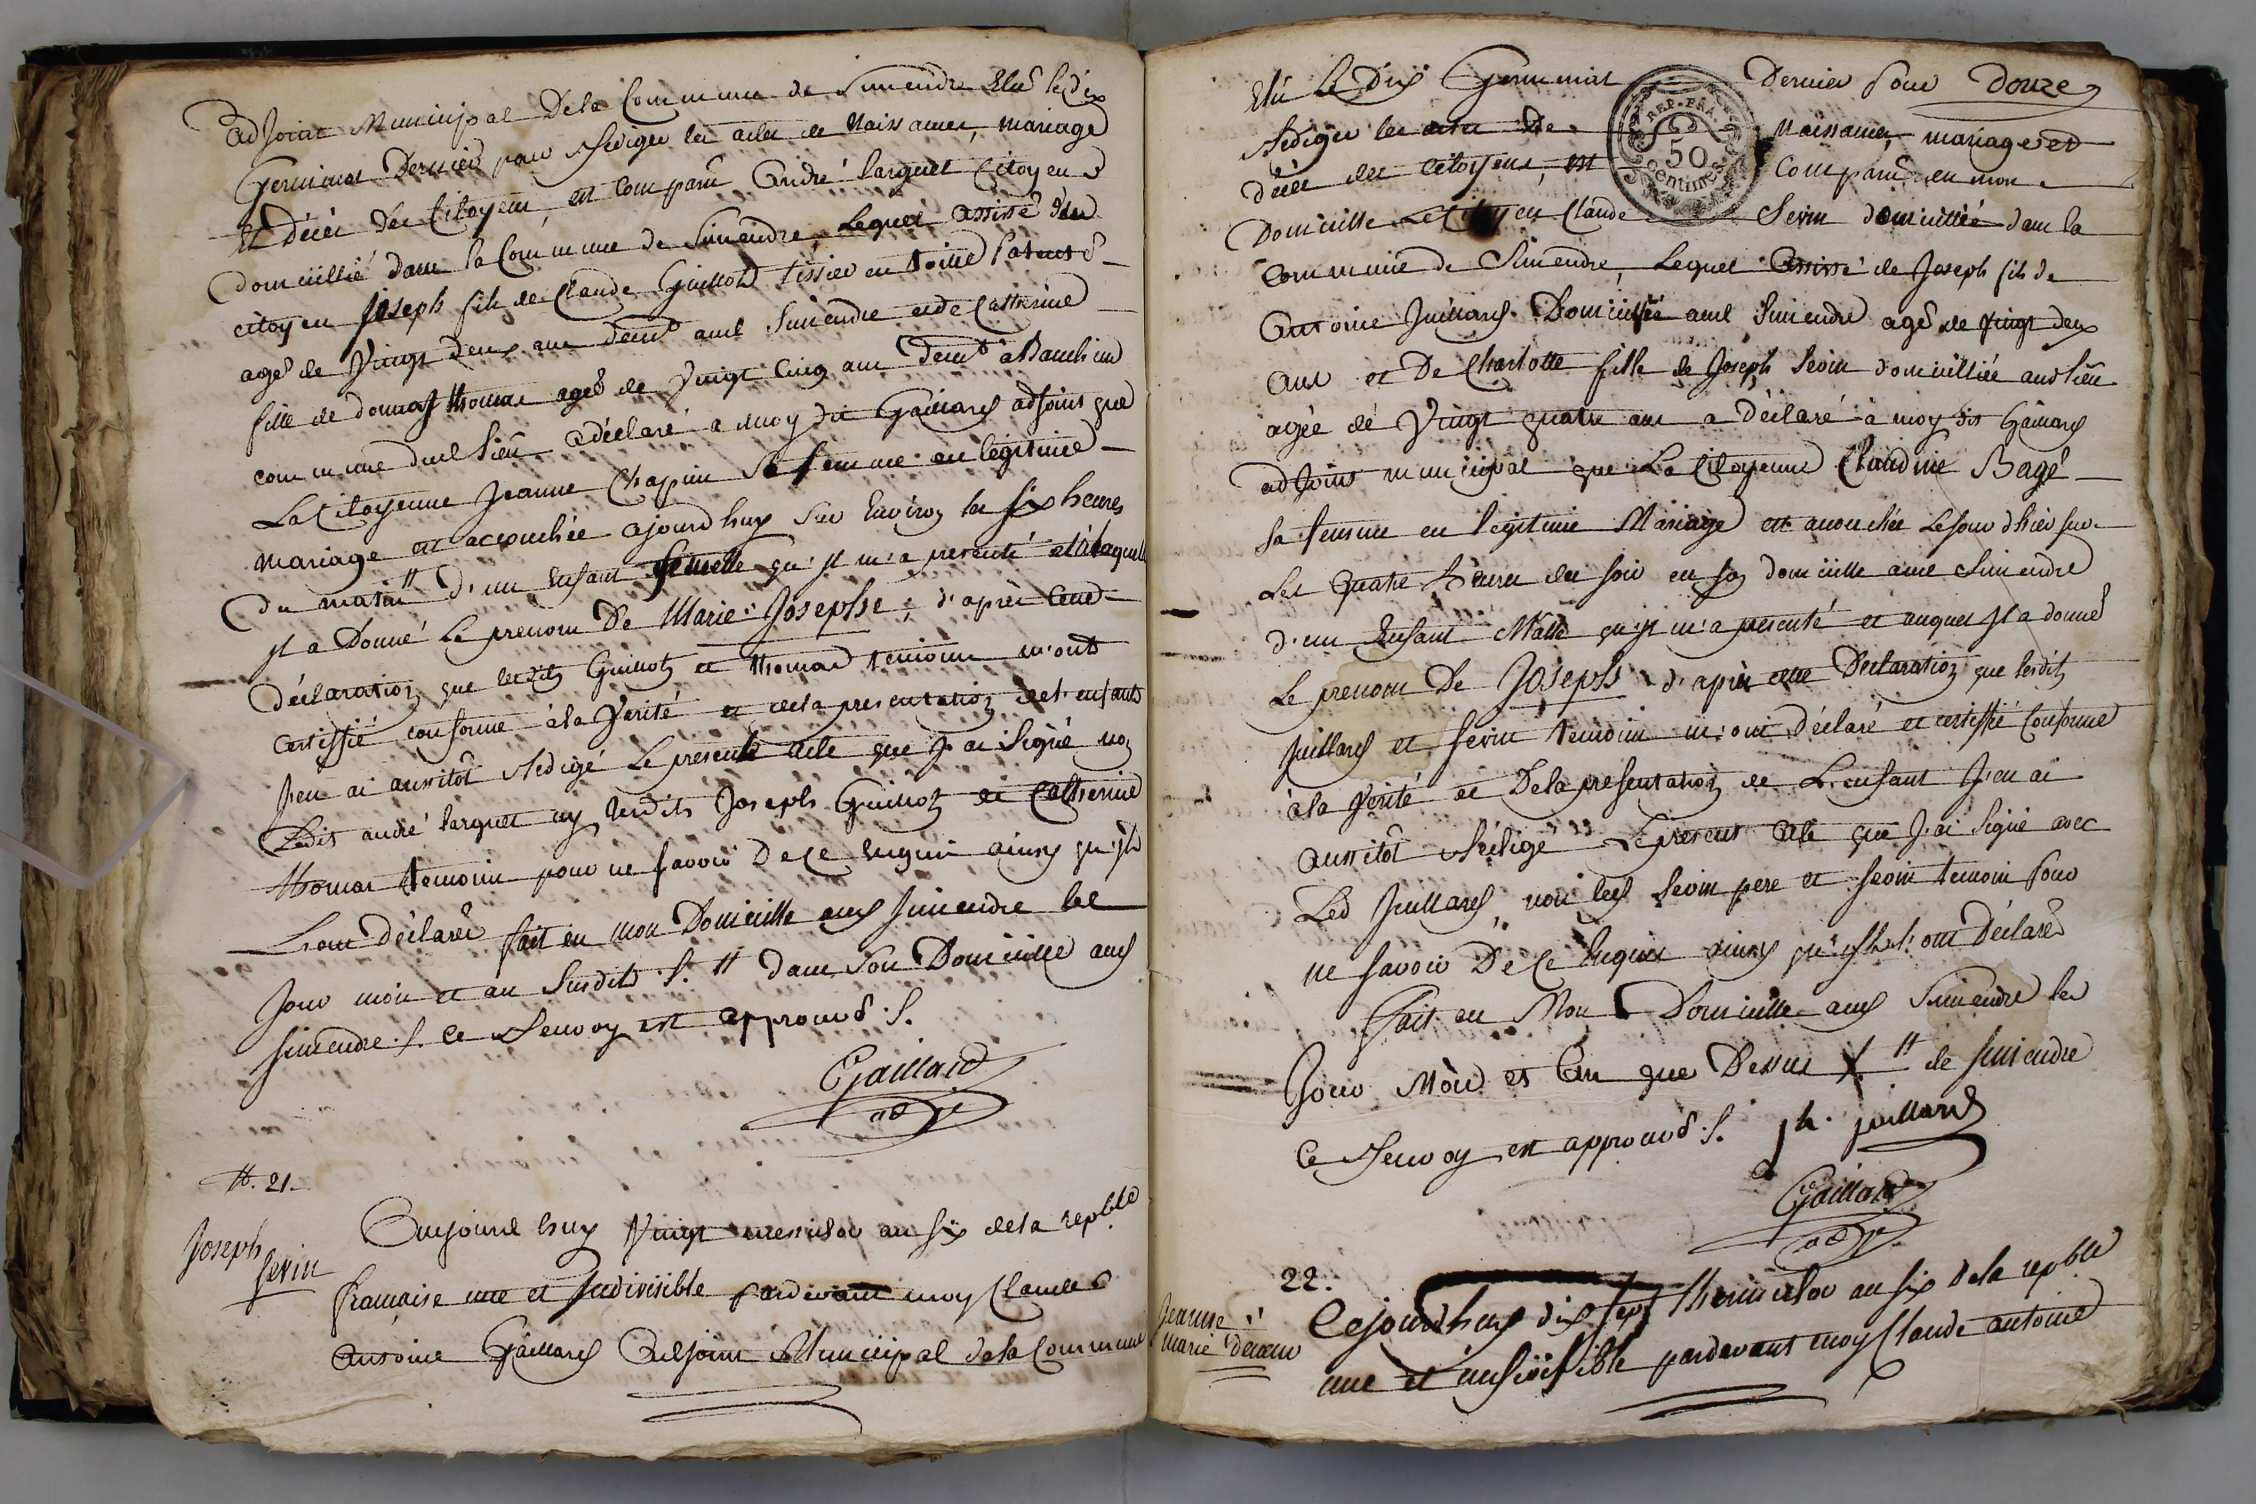 adjoint Municipal De la Commune de Simendre Elu le dix
Germinal Dernier pour Rediger les actes de Naissances, mariage
Et décès des Citoyens, est comparû André larguet Citoyen
domicillié dans la Commune de Simendre, Lequel assisse du
citoyen Joseph fils de Claude Guillot tissier en toille patenté
agé de Vingt deux ans demt aud Simendre et de Catherine
fille de Thomas agée de Vingt Cinq ans demt a
commune dud lieu a déclaré a moy dit Gaillard adjoint que
La Citoyenne Jeanne Chapuis Sa femme en légitime
mariage est accouchée ajourdhuy sur Environ les six heures
du matin # d'un Enfant femelle qu'jl m'a presenté et a laquelle
jl a Donné Le prenom De Marie Josephe, d'après Cette
déclaration que lesdits Guillot et Thomas temoins m'ont
certiffié conforme à la Verité et de la presentation de l'enfant
J'en ai aussitôt Redigé Le present acte que J'ai Signé non
Ledit andré larguet ny lesdits Joseph Guillot et Catherine
Thomas temoins pour ne savoir De ce Enquis ainsy qu'jls
L'ont déclarés fait en mon Domicille aud Simendre les
Jour mois et an Susdits S. # dans son Domicille aud
Simendre S. ce Renvoy est approuvé S.
Gaillard
adj
N. 21.
Joseph
sevin
Aujourd huy Vingt messidor an six de la repble
française une et Indivisible pardevant moy Claude
Antoine Gaillard Adjoint Municipal de la Commune
Elû Le Dix Germinal Dernier pour douze
Rediger les actes De Naissances, mariage et
décès des Citoyens, est Comparû en mon
Domicille Le Citoyen Claude Sevin domicillié dans la
REP. FRA.
50
centimes
Commune de Simendre, Lequel Assisse de Joseph fils de
Antoine Juillard Domicillié aud Simendre agé de Vingt deux
ans et De Charlotte fille de Joseph Sevin domicilliée aud lieu
agée de Vingt quatre ans a déclaré à moy dit Gaillard
adjoint municipal que La Citoyenne Claudine Bagé
sa femme en légitime Mariage est accouchée Le jour d'hier sur
Les quatre heures du soir en son domicille aud Simendre
d'un Enfant Malle qu'jl m'a presenté et auquel jl a donné
Le prenom De Joseph d'après cette Déclaration que lesdits
Juillard et Sevin temoins m'ont déclaré et certiffié Conforme
à la Verité et De la presentation de L'enfant J'en ai
aussitôt Rédigé Le present acte que J'ai Signé avec
Led Juillard, non led Sevin pere et Sevin temoin pour
ne savoir De ce Enquis ainsy qu'jls l'ont Déclarés
Fait en Mon Domicille aud Simendre les
Jour Mois et an que Dessus S. # de Simendre
Ce Renvoy est approuvé S. jh. juillard
Gaillard
adj
22.
Jeanne
marie
Cejourdhuy dix sept thermidor an six de la repble
une et indivisible pardevant moy Claude antoine